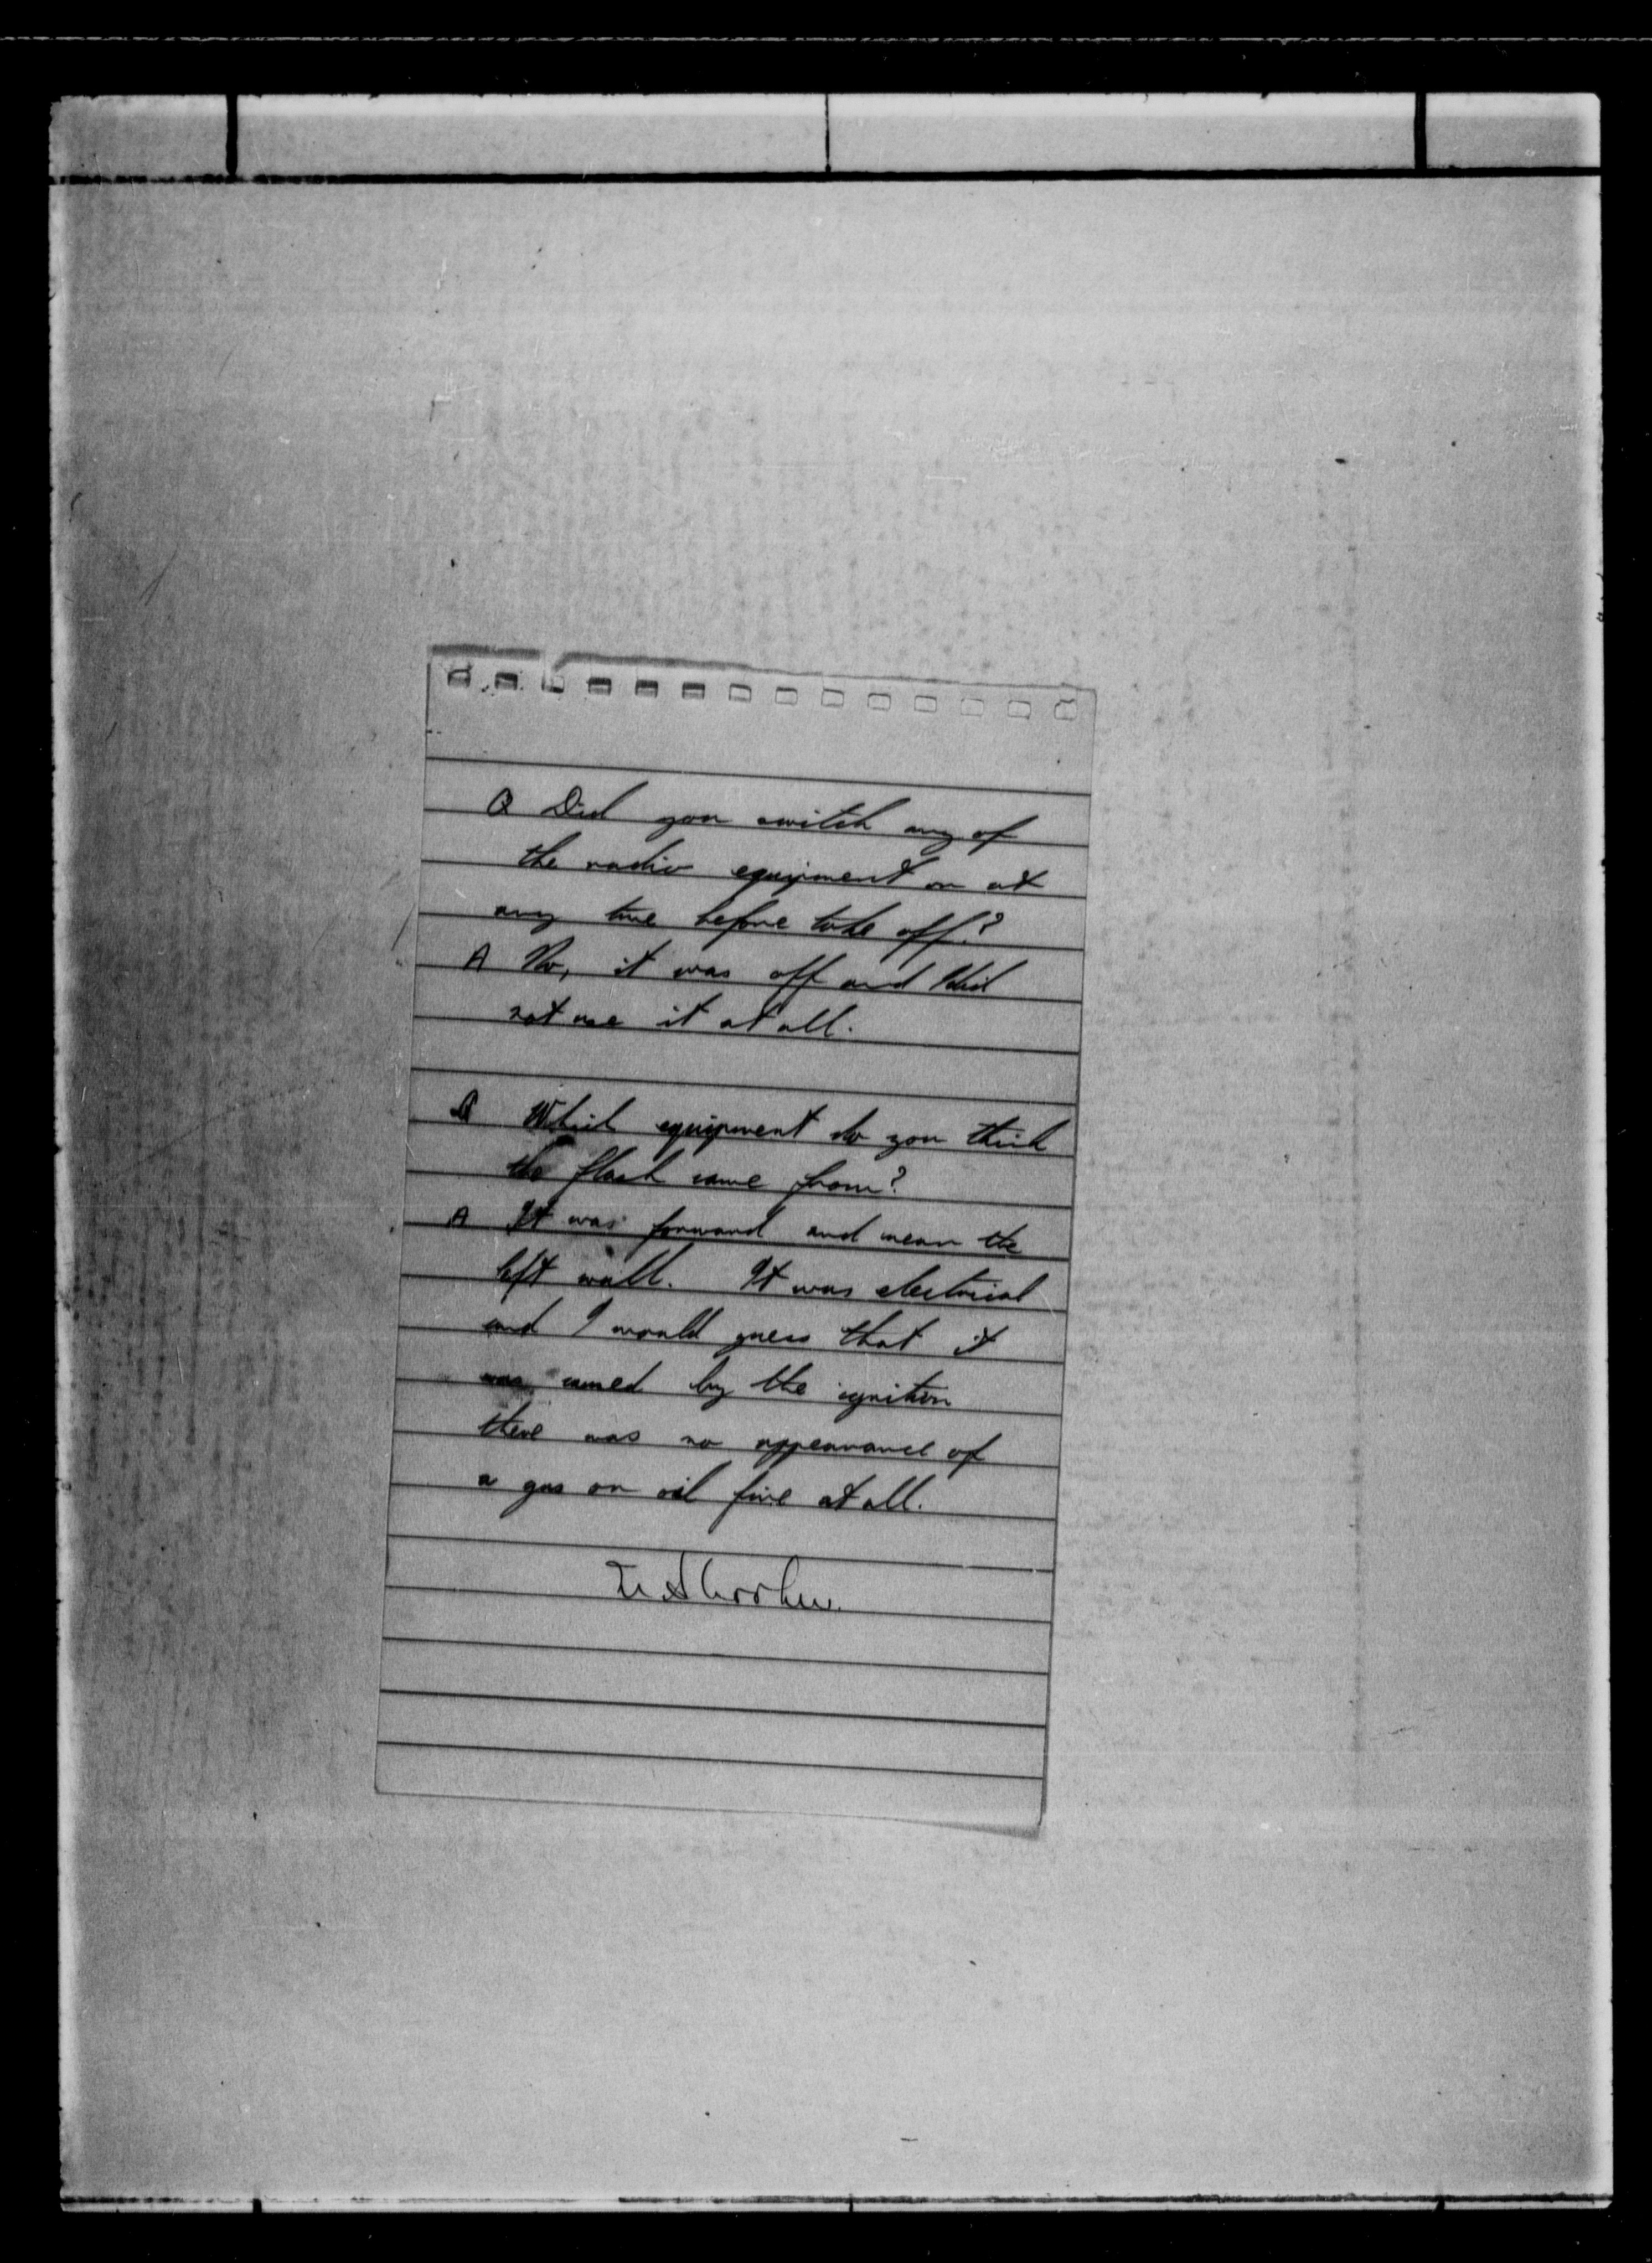 Q Did you switch any of
the radio equipment on at
any time before take off?
A No, it was off and I did
not use it at all.
Q Which equipment do you think
the flash came from?
A It was forward and near the
left wall. It was electrical
and I would guess that it
was caused by the ignition
there was no appearance of
a gas or oil fire at all.